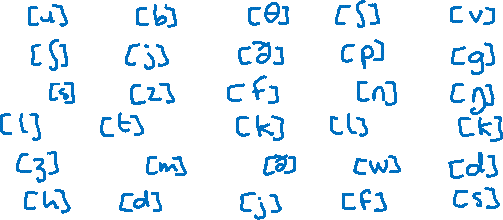 [u] [b] [θ] [ʃ] [v]
[ʃ] [j] [ð] [p] [g]
[s] [z] [f] [n] [ŋ]
[l] [t] [k] [l] [k]
[ʒ] [m] [ð] [w] [d]
[h] [d] [j] [f] [s]